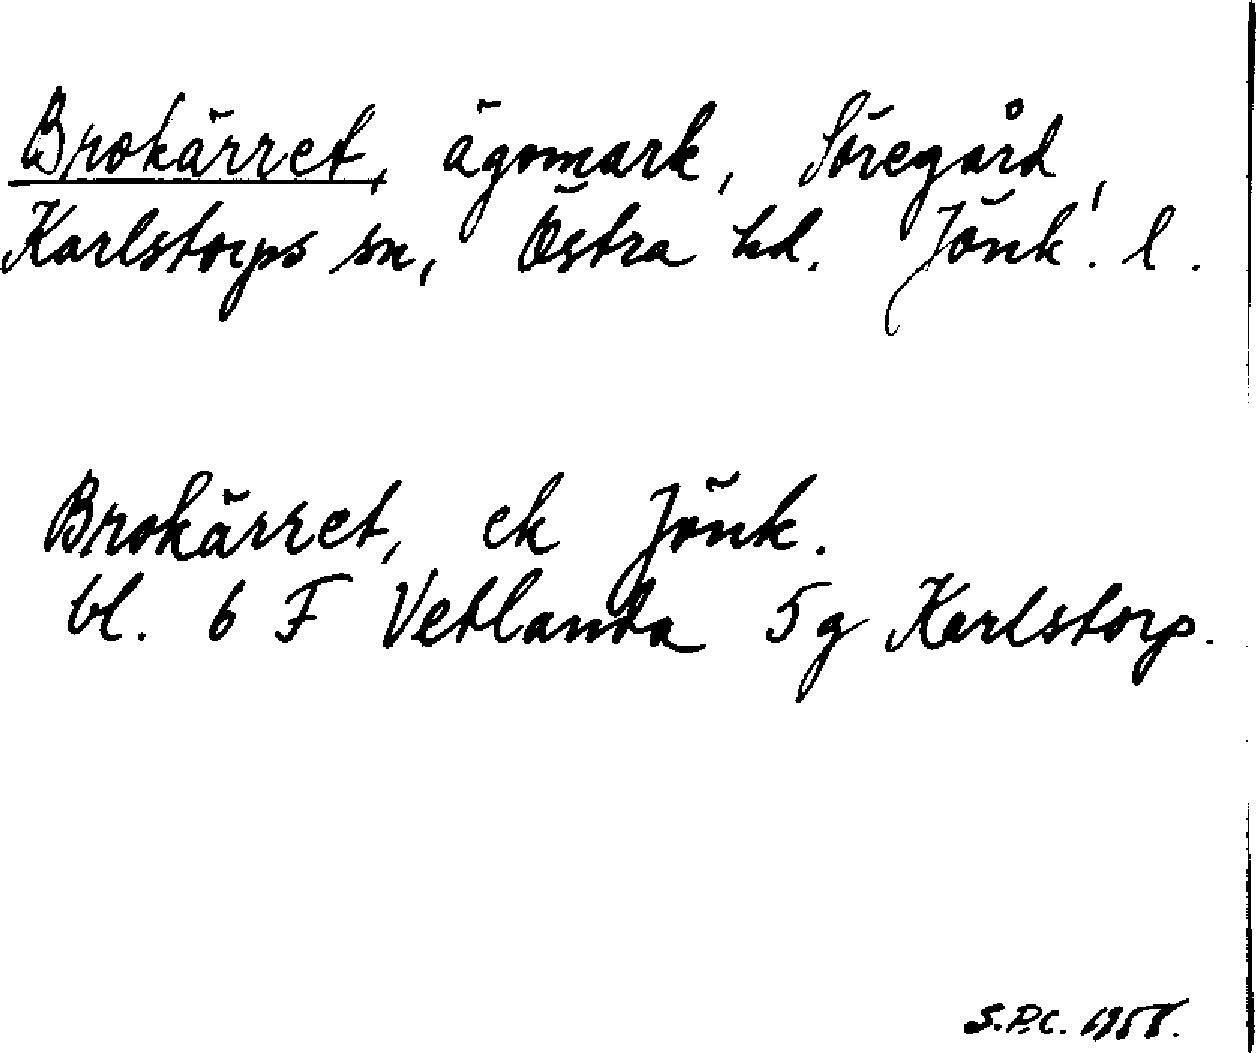 Brokärret, ägomark, Söregård,
Karlstorps sn, Östra hd. Jönk. l.
Brokärret, ek Jönk.
bl. 6 F Vetlanda 5g Karlstorp.
S.P.C. 1958.